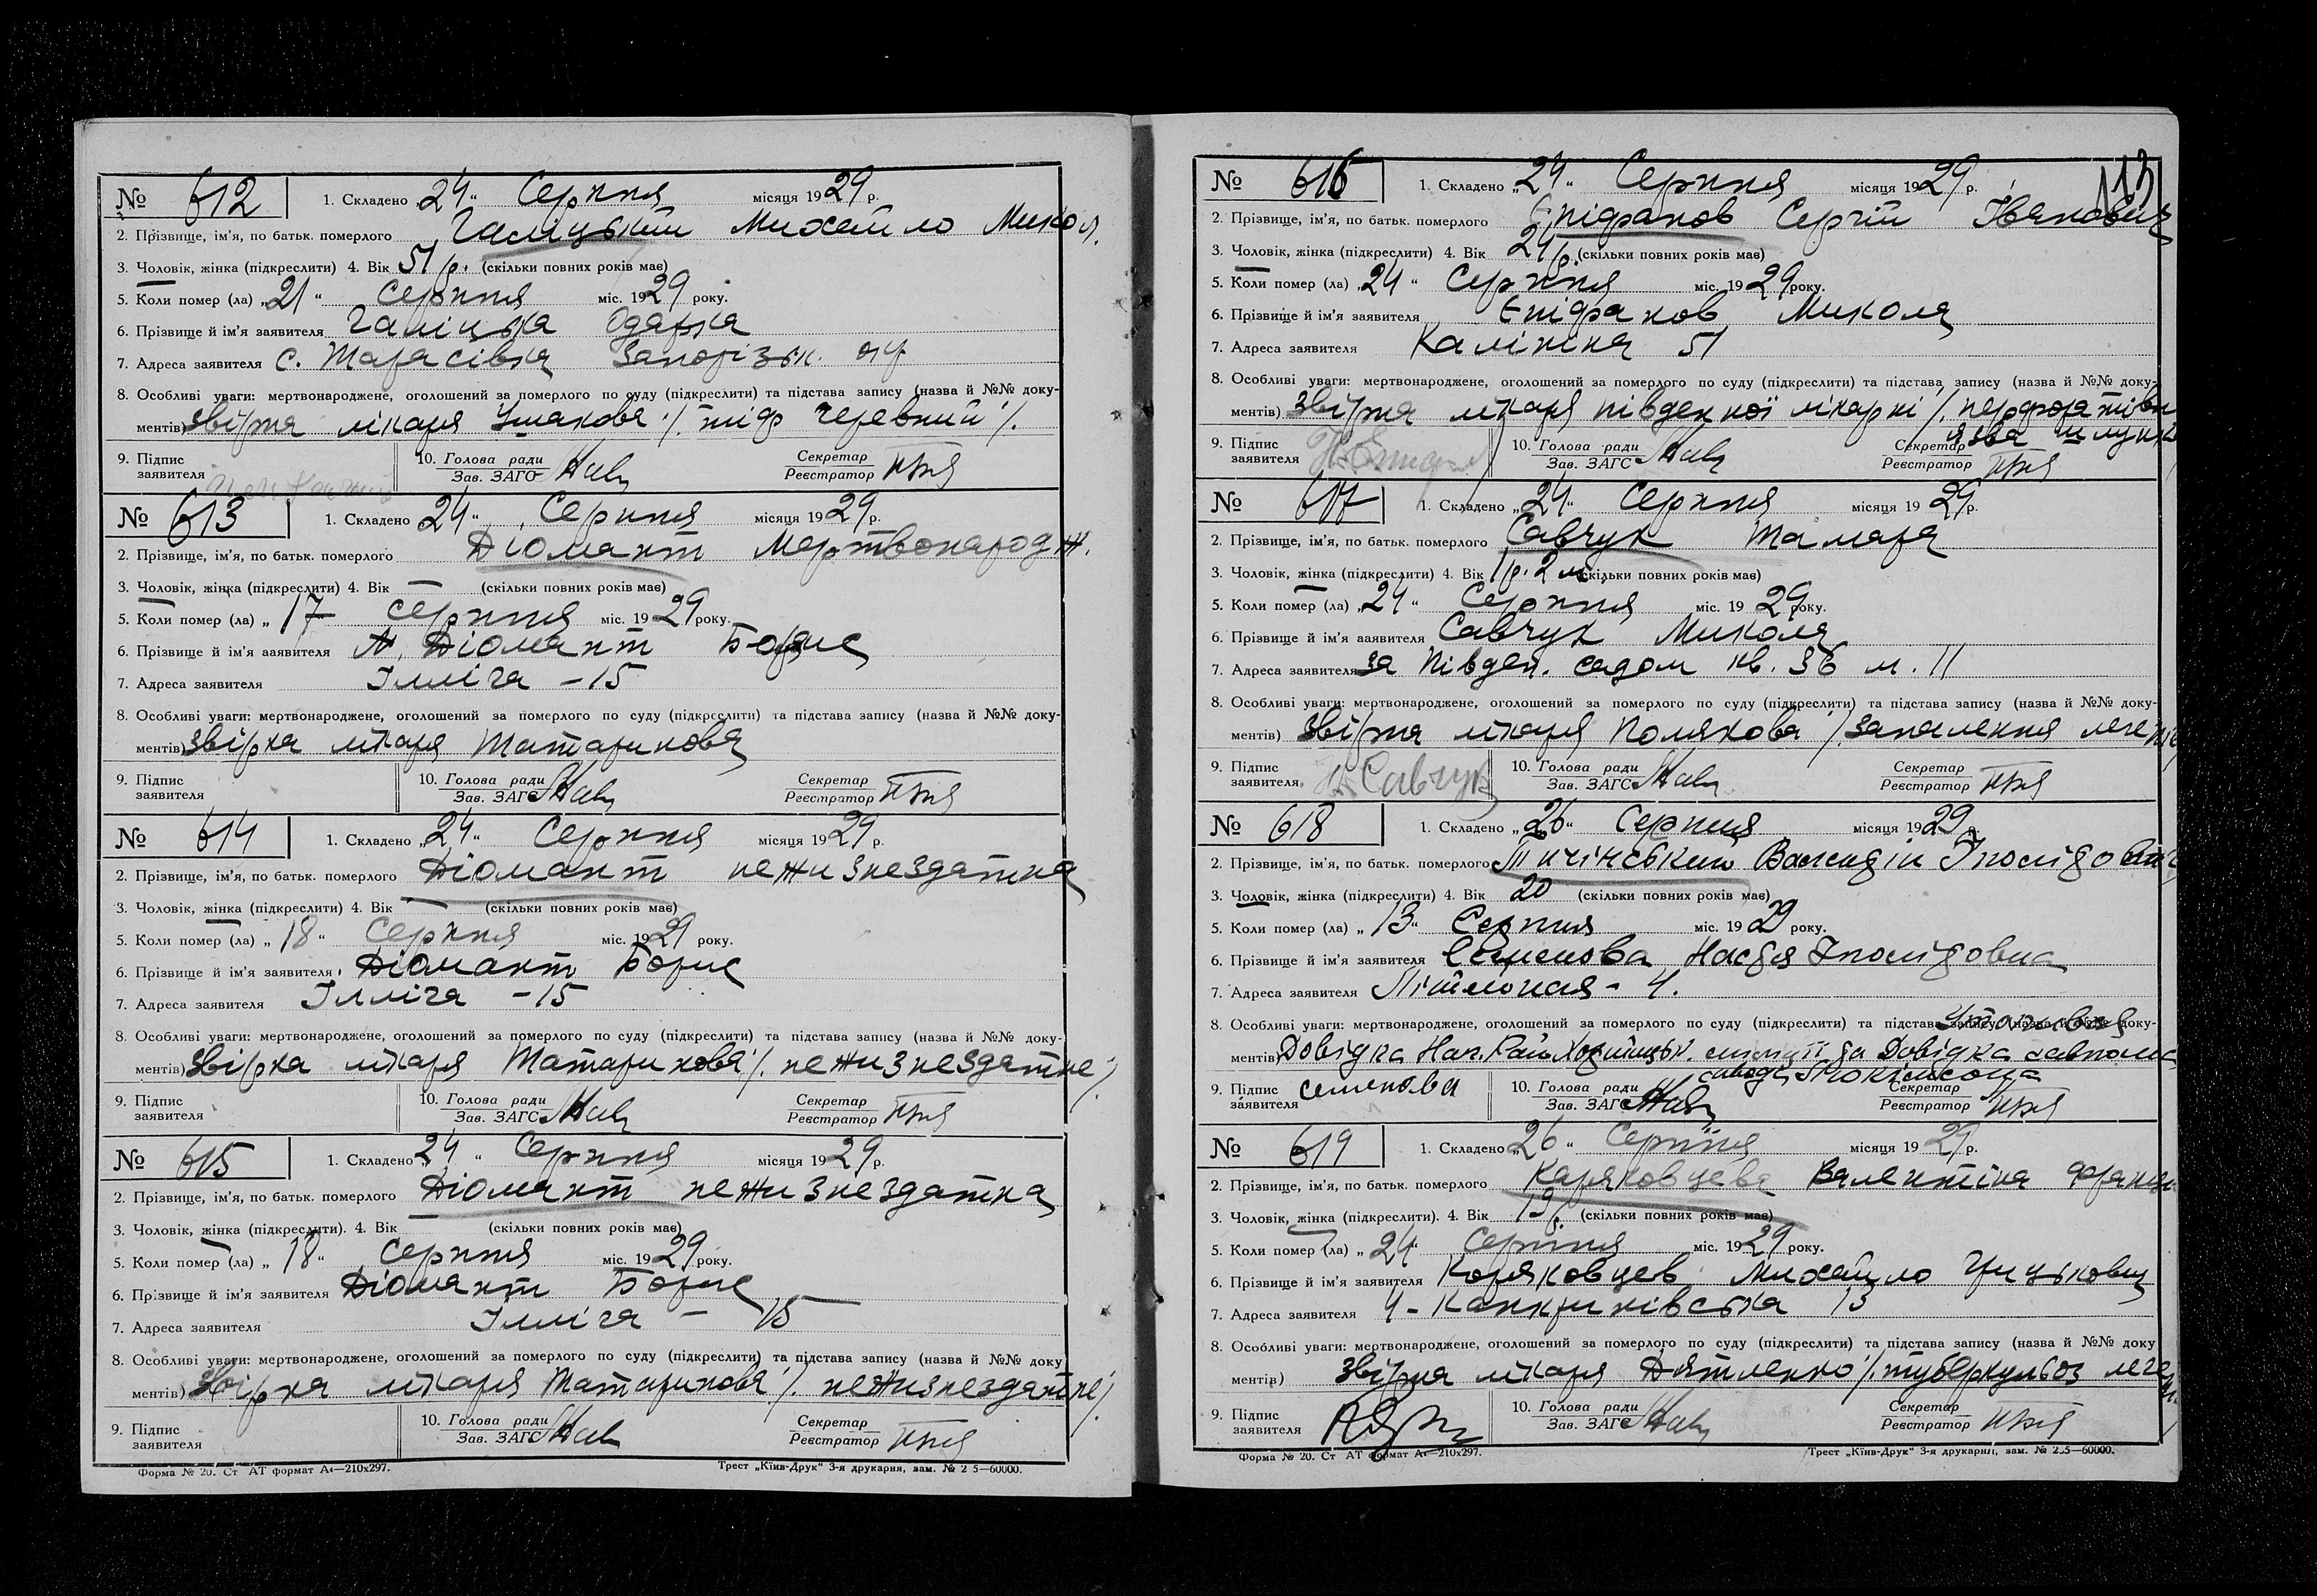 № 612 1. Складено „24“ Серпня місяця 1929 р.
2. Прізвище, ім'я, по батьк. померлого Галіцький Михайло Микол.
3. Чоловік, жінка (підкреслити) 4. Вік 51 р. (скільки повних років має)
5. Коли помер (ла) „21“ Серпня міс. 1929 року.
6. Прізвище й ім'я заявителя Галіцька Одарка
7. Адреса заявителя с. Тарасівка Запорізьк. окр
8. Особливі уваги: мертвонароджене, оголошений за померлого по суду (підкреслити) та підстава запису (назва й №№ доку-
ментів) Звірка лікаря Ушакова /. тіф черевний /.
9. Підпис заявителя 10. Голова ради Зав. ЗАГС Секретар Реєстратор
№ 613 1. Складено „24“ Серпня місяця 1929 р.
2. Прізвище, ім'я, по батьк. померлого Діомант мертвонародж.
3. Чоловік, жінка (підкреслити) 4. Вік — (скільки повних років має)
5. Коли помер (ла) „17 Серпня міс. 1929 року.
6. Прізвище й ім'я заявителя Діомант Борис
7. Адреса заявителя Ілліча -15
8. Особливі уваги: мертвонароджене, оголошений за померлого по суду (підкреслити) та підстава запису (назва й №№ доку-
ментів) Звірка лікаря Татаринова
9. Підпис заявителя 10. Голова ради Зав. ЗАГС Секретар Реєстратор
№ 614 1. Складено „24“ Серпня місяця 1929 р.
2. Прізвище, ім'я, по батьк. померлого Діомант нежизнездатна
3. Чоловік, жінка (підкреслити) 4. Вік — (скільки повних років має)
5. Коли помер (ла) „18“ Серпня міс. 1929 року.
6. Прізвище й ім'я заявителя Діомант Борис
7. Адреса заявителя Ілліча -15
8. Особливі уваги: мертвонароджене, оголошений за померлого по суду (підкреслити) та підстава запису (назва й №№ доку-
ментів) Звірка лікаря Татаринова /. нежизнездатне /.
9. Підпис заявителя 10. Голова ради Зав. ЗАГС Секретар Реєстратор
№ 615 1. Складено „24“ Серпня місяця 1929 р.
2. Прізвище, ім'я, по батьк. померлого Діомант нежизнездатна
3. Чоловік, жінка (підкреслити). 4. Вік — (скільки повних років має)
5. Коли помер (ла) „18“ Серпня міс. 1929 року.
6. Прізвище й ім'я заявителя Діомант Борис
7. Адреса заявителя Ілліча - 15
8. Особливі уваги: мертвонароджене, оголошений за померлого по суду (підкреслити) та підстава запису (назва й №№ доку
ментів) Звірка лікаря Татаринова /. нежизнездатне /.
9. Підпис заявителя 10. Голова ради Зав. ЗАГС Секретар Реєстратор
Форма № 20. Ст АТ формат А4—210х297. Трест „Київ-Друк“ 3-я друкарня, зам. № 2 5—60000.
113
№ 616 1. Складено „24“ Серпня місяця 1929 р.
2. Прізвище, ім'я, по батьк. померлого Єпіфанов Сергій Іванович
3. Чоловік, жінка (підкреслити) 4. Вік 24 р. (скільки повних років має)
5. Коли помер (ла) „24“ Серпня міс. 1929 року.
6. Прізвище й ім'я заявителя Єпіфанов Микола
7. Адреса заявителя Калініна 51
8. Особливі уваги: мертвонароджене, оголошений за померлого по суду (підкреслити) та підстава запису (назва й №№ доку-
ментів) Звірка лікаря південної лікарні /. перфоративн
язва шлунк
9. Підпис заявителя 10. Голова ради Зав. ЗАГС Секретар Реєстратор
№ 617 1. Складено „24“ Серпня місяця 1929 р.
2. Прізвище, ім'я, по батьк. померлого Савчук Тамара
3. Чоловік, жінка (підкреслити) 4. Вік 1 р. 2 м. (скільки повних років має)
5. Коли помер (ла) „24“ Серпня міс. 1929 року.
6. Прізвище й ім'я заявителя Савчук Микола
7. Адреса заявителя за Півден. садом кв. 36 м. 11
8. Особливі уваги: мертвонароджене, оголошений за померлого по суду (підкреслити) та підстава запису (назва й №№ доку-
ментів) Звірка лікаря Полякова /. запалення легенів
9. Підпис заявителя Н. Савчук 10. Голова ради Зав. ЗАГС Секретар Реєстратор
№ 618 1. Складено „26“ Серпня місяця 1929 р.
2. Прізвище, ім'я, по батьк. померлого Тичінський Іполідович
3. Чоловік, жінка (підкреслити) 4. Вік 20 (скільки повних років має)
5. Коли помер (ла) „13“ Серпня міс. 1929 року.
6. Прізвище й ім'я заявителя Семенова Настя Іполідовна
7. Адреса заявителя 4.
8. Особливі уваги: мертвонароджене, оголошений за померлого по суду (підкреслити) та підстава запису (назва й №№ доку-
ментів) Довідка Нач. Рай. Хортицьк. міліції та Довідка
9. Підпис заявителя Семенова 10. Голова ради Зав. ЗАГС Секретар Реєстратор
№ 619 1. Складено „26“ Серпня місяця 1929 р.
2. Прізвище, ім'я, по батьк. померлого Каряковцева Валентіна Франц
3. Чоловік, жінка (підкреслити). 4. Вік 19 р. (скільки повних років має)
5. Коли помер (ла) „24“ Серпня міс. 1929 року.
6. Прізвище й ім'я заявителя Коряковцев Михайло
7. Адреса заявителя 4 - Канкринівська 13
8. Особливі уваги: мертвонароджене, оголошений за померлого по суду (підкреслити) та підстава запису (назва й №№ доку
ментів) Звірка лікаря Дятленко /. туберкульоз леген.
9. Підпис заявителя 10. Голова ради Зав. ЗАГС Секретар Реєстратор
Форма № 20. Ст АТ формат А4—210х297. Трест „Київ-Друк“ 3-я друкарня, зам. № 2.5—60000.